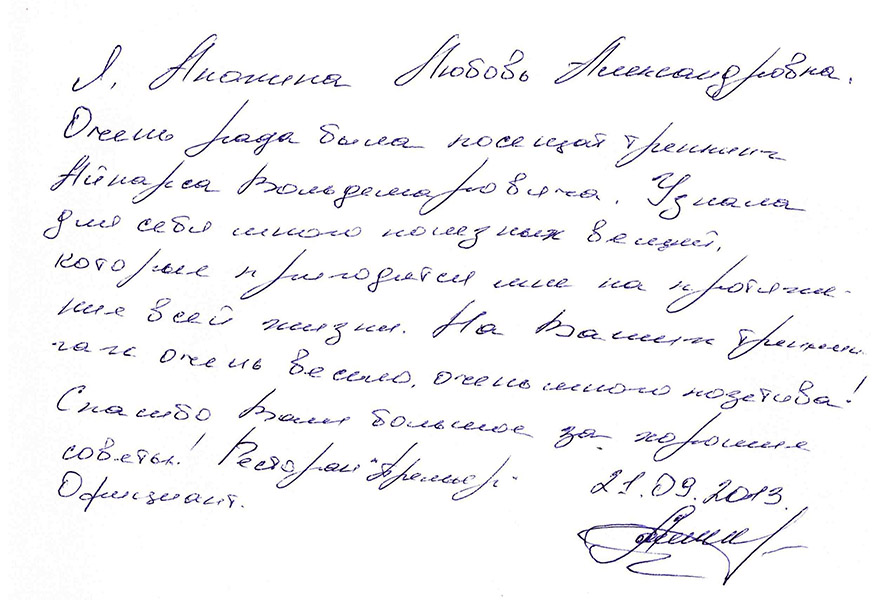 Я, Анахина Любовь Александровна.
Очень рада была посещат тренинг
Айнарса Вольдемаровича. Узнала
для себя много полезных вещей,
которые пригодятся мне на протяже-
ние всей жизни. На Ваших тренин-
гах очень весело, очень много позетива!
Спасибо Вам большое за хорошие
советы! Ресторан "Премьер"
21.09.2013
Официант.